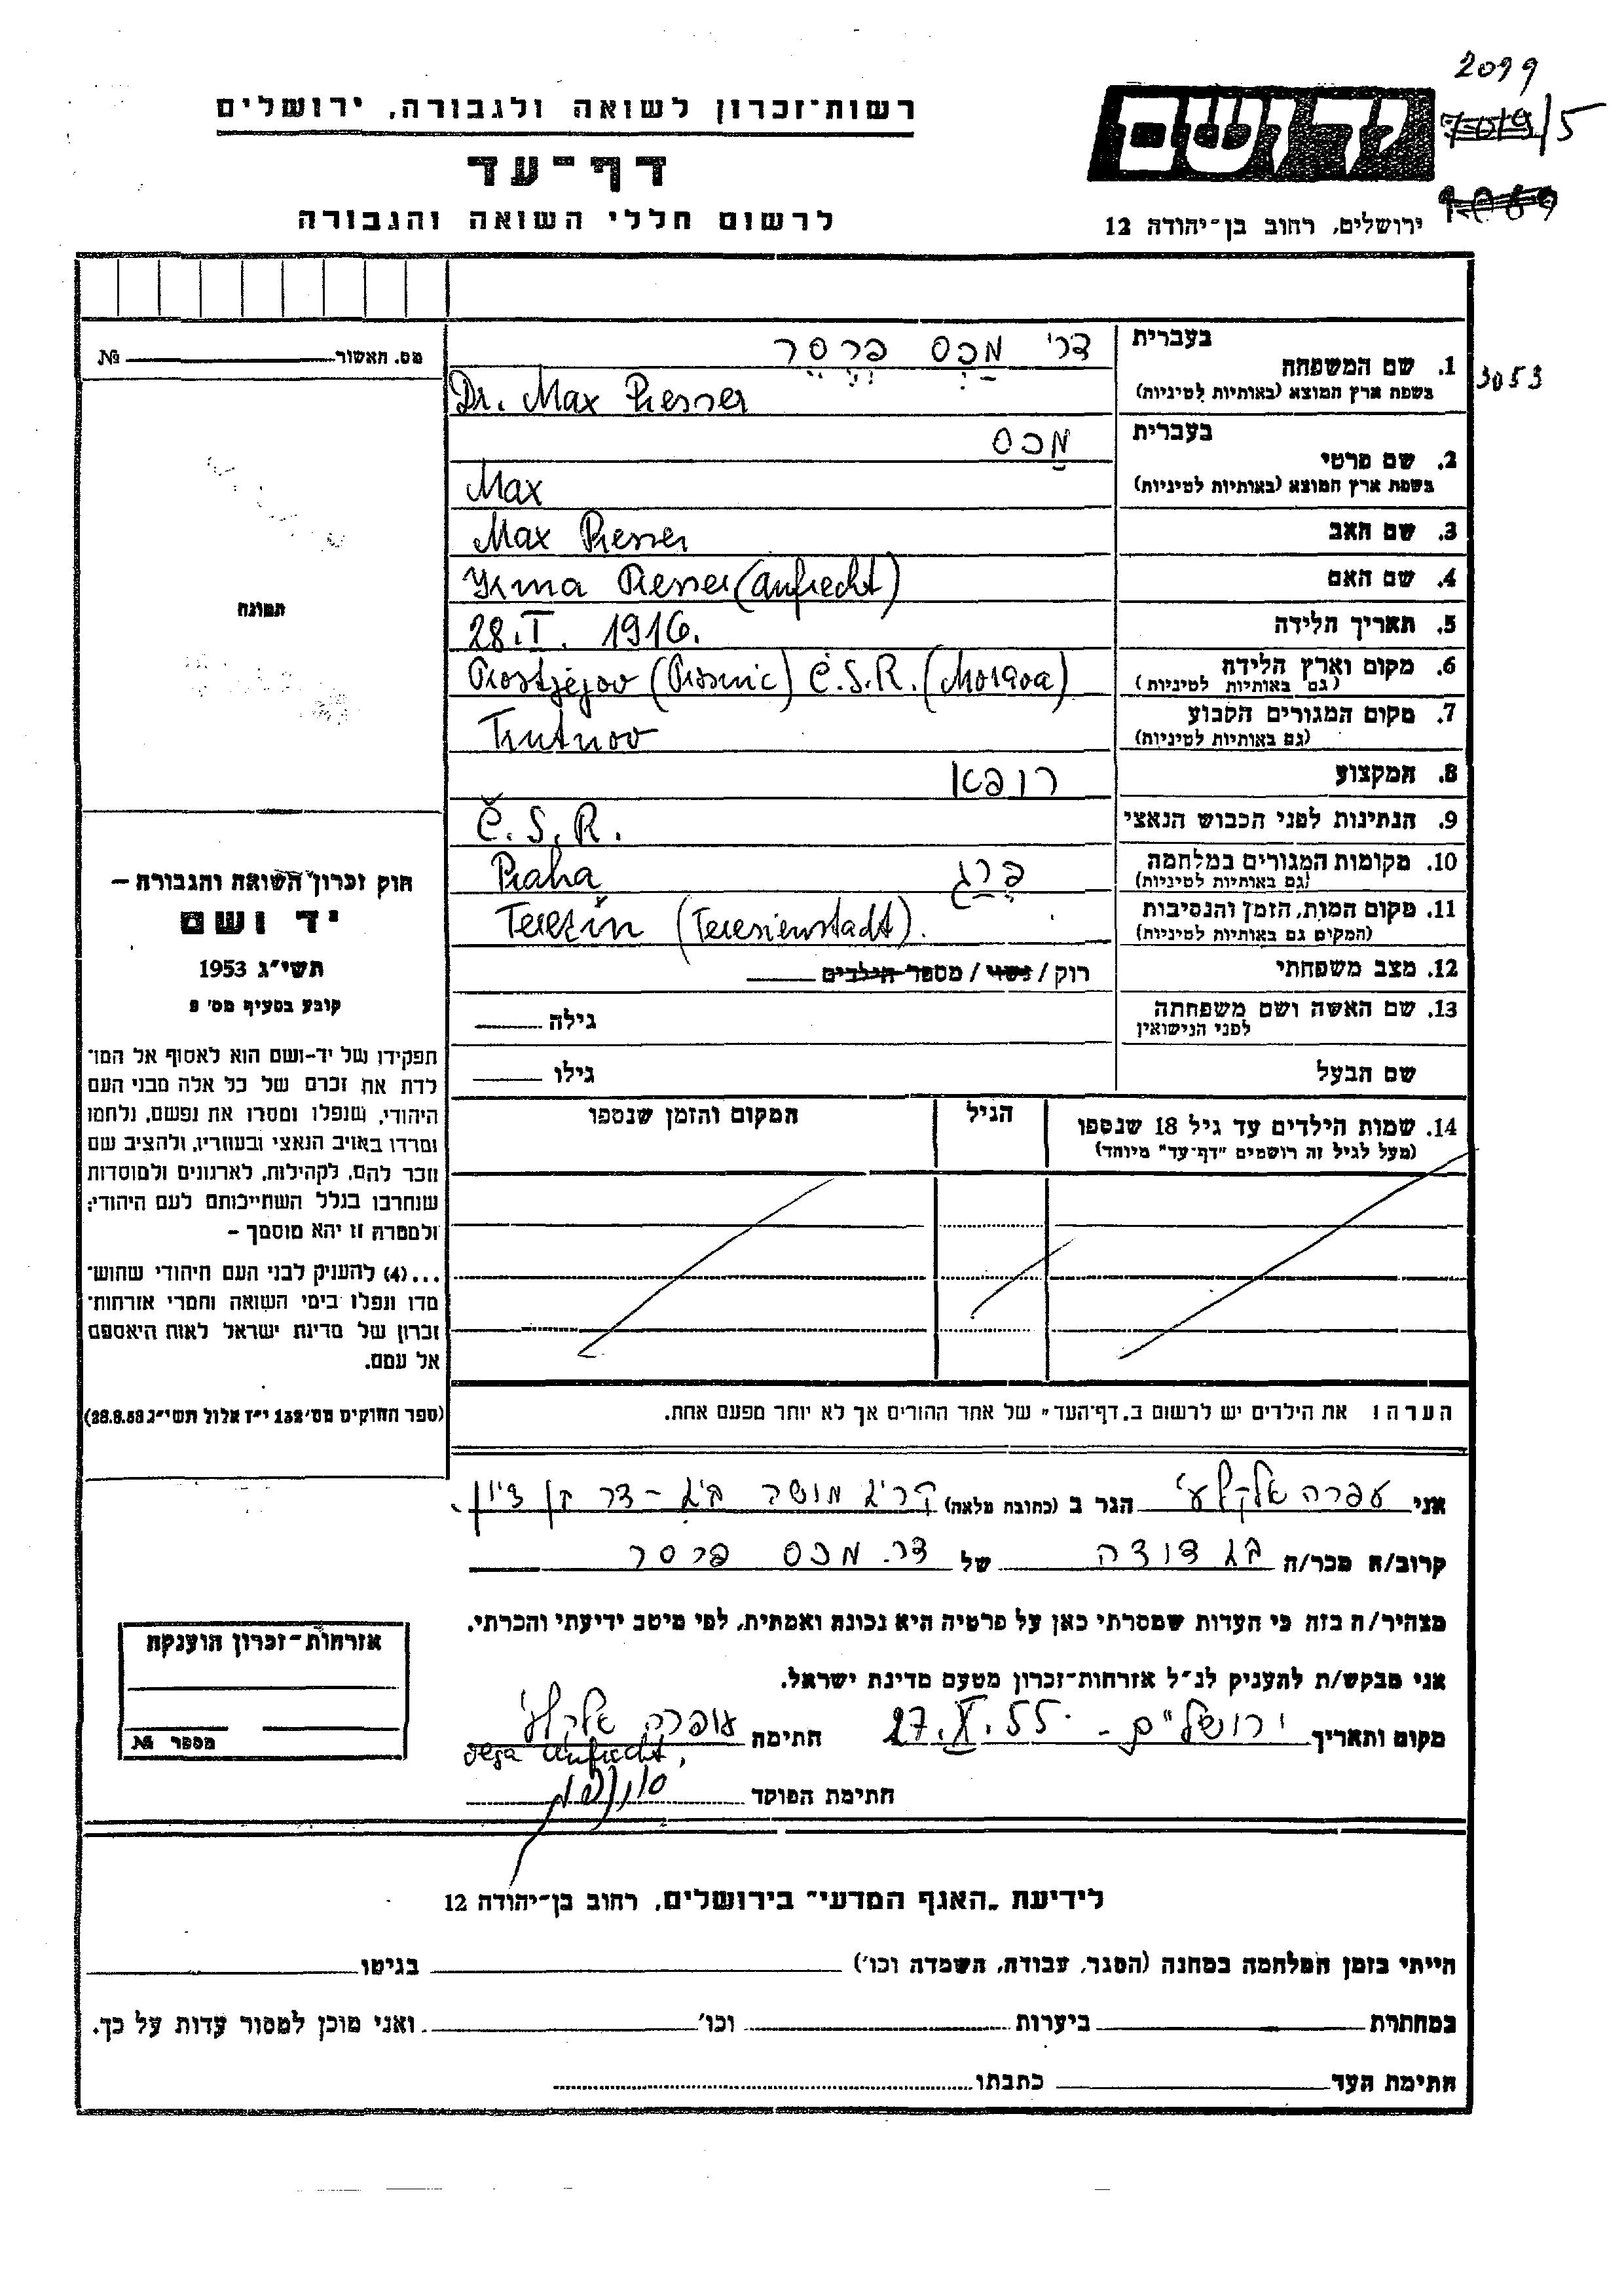 2099
7019/5
רשות־זכרון לשואה ולגבורה, ירושלים
ידושם
דף־עד
7069
לרשום חללי השואה והגבורה
ירושלים, רחוב בן־יהודה 12
בעברית
דר' מכס פרסר
מס. האשור № 
1. שם המשפחה
3053
בשפת ארץ המוצא (באותיות לטיניות)
Dr. Max Presser
בעברית
מכס
2. שם פרטי
בשפת ארץ המוצא (באותיות לטיניות)
Max
3. שם האב
Max Presser
4. שם האם
Irma Presser (Aufrecht)
תמונה
5. תאריך הלידה
28.I. 1916.
6. מקום וארץ הלידה
(גם באותיות לטיניות)
Prostjéjov (Prosnic) Č.S.R. (Morava)
7. מקום המגורים הקבוע
(גם באותיות לטיניות)
Trutnov
8. המקצוע
רופא
9. הנתינות לפני הכבוש הנאצי
Č.S.R.
10. מקומות המגורים במלחמה
(גם באותיות לטיניות)
פרג Praha
11. מקום המות, הזמן והנסיבות
(המקום גם באותיות לטיניות)
Terezín (Teresienstadt).
12. מצב משפחתי
רוק / נשוי / מספר הילדים
13. שם האשה ושם משפחתה
לפני הנישואין
גילה
שם הבעל
גילו
חוק זכרון השואה והגבורה –
יד ושם
תשי״ג 1953
קובע בסעיף מס' 2
תפקידו של יד-ושם הוא לאסוף אל המו־
לדת את זכרם של כל אלה מבני העם
היהודי, שנפלו ומסרו את נפשם, נלחמו
ומרדו באויב הנאצי ובעוזריו, ולהציב שם
וזכר להם, לקהילות, לארגונים ולמוסדות
שנחרבו בגלל השתייכותם לעם היהודי;
ולמטרה זו יהא מוסמך –
...(4) להעניק לבני העם היהודי שהוש־
מדו ונפלו בימי השואה והמרי אזרחות־
זכרון של מדינת ישראל לאות היאספם
אל עמם.
(ספר החוקים מס׳ 132 י״ז אלול תשי״ג 28.8.53)
14. שמות הילדים עד גיל 18 שנספו
(מעל לגיל זה רושמים "דף־עד" מיוחד)
הגיל
המקום והזמן שנספו
הערה: את הילדים יש לרשום ב„דף־העד״ של אחד ההורים אך לא יותר מפעם אחת.
אני עפרה אלקלעי הגר ב (כתובת מלאה)
קרוב/ה מכר/ה בת דודה של דר. מכס פרסר
מצהיר/ה בזה כי העדות שמסרתי כאן על פרטיה היא נכונה ואמתית, לפי מיטב ידיעתי והכרתי.
אני מבקש/ת להעניק לנ״ל אזרחות־זכרון מטעם מדינת ישראל.
מקום ותאריך ירושלים - 27.X.55 חתימה עופרה אלקלעי
Aufrecht
חתימת הפוקד
אזרחות־זכרון הוענקה
מספר №
לידיעת „האגף המדעי״ בירושלים, רחוב בן־יהודה 12
הייתי בזמן המלחמה במחנה (הסגר, עבודה, השמדה וכו׳) בגיטו
במחתרת ביערות וכו׳ ואני מוכן למסור עדות על כך.
חתימת העד כתבתו